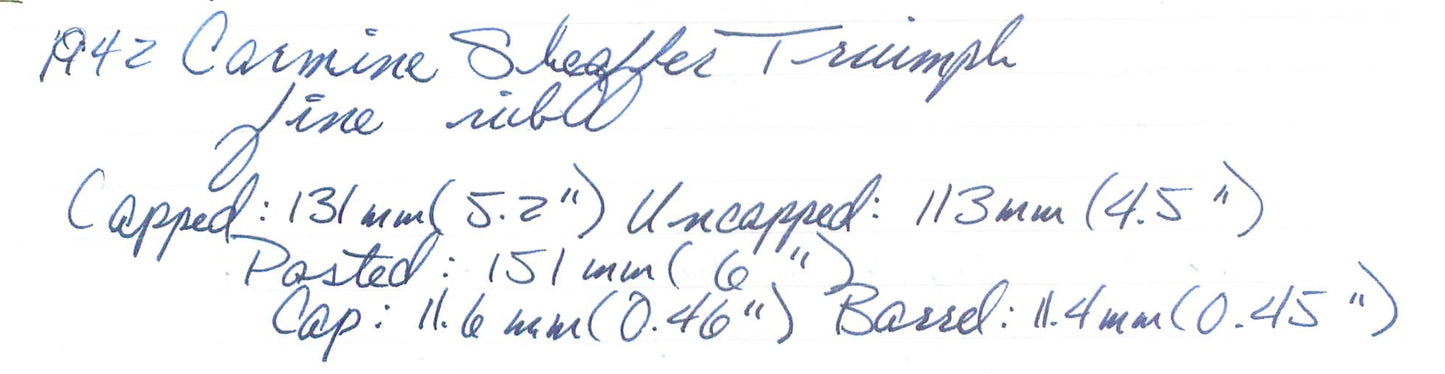 1942 Carmine Sheaffer Triumph
fine nib
Capped: 131mm (5.2") Uncapped: 113mm (4.5")
Posted: 151mm (6")
Cap: 11.6mm (0.46") Barrel: 11.4mm (0.45")